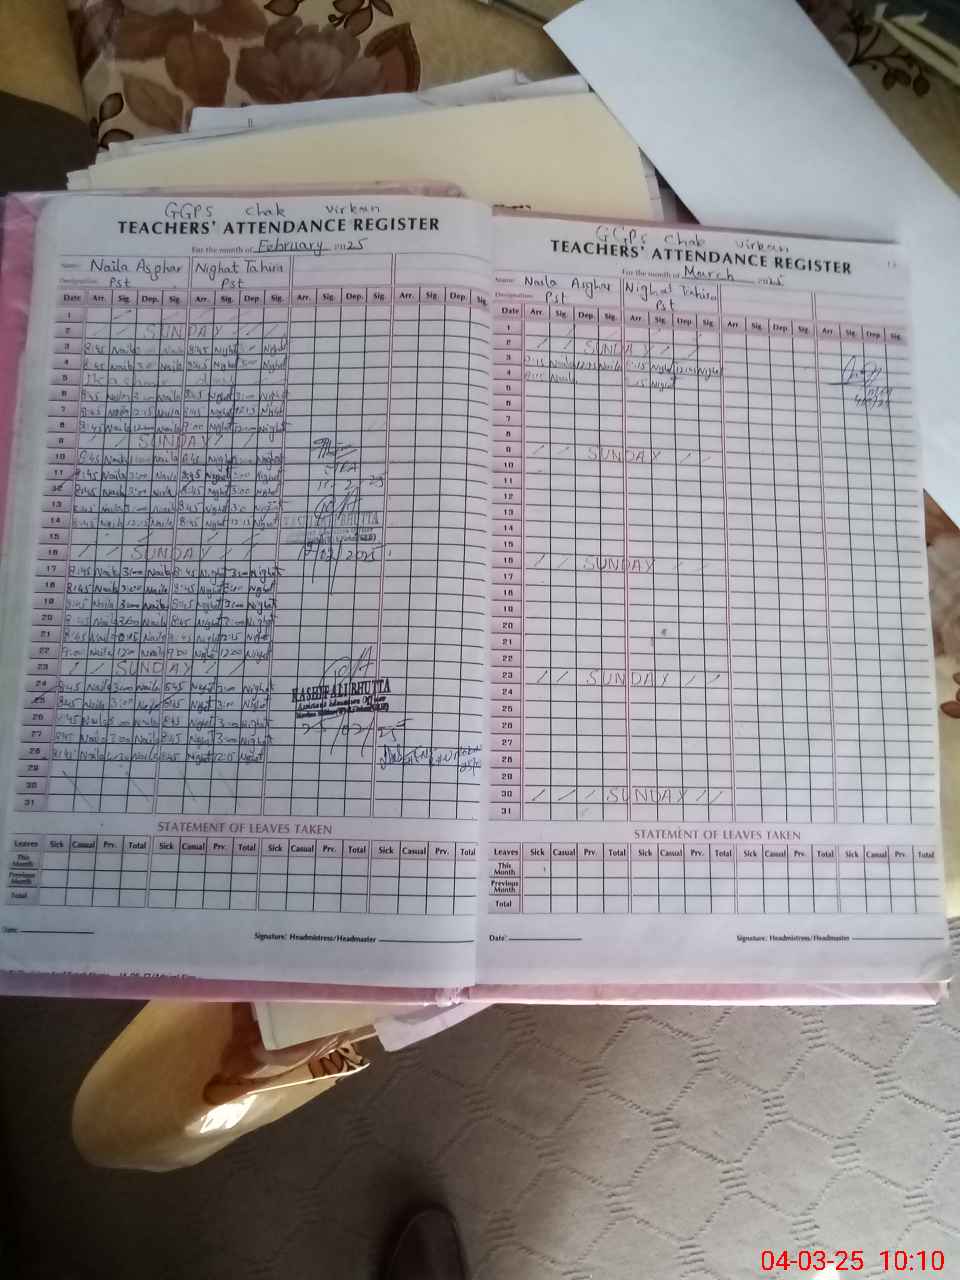 GGPS chak virkan
TEACHERS' ATTENDANCE REGISTER
For the month of February 2025
Name: Naila Asghar Nighat Tahira
Designation: Pst Pst
Date Arr. Sig. Dep. Sig. Arr. Sig. Dep. Sig. Arr. Sig. Dep. Sig. Arr. Sig. Dep. Sig.
1
2 SUNDAY
3 8:45 Naila Naila 8:45 Nighat Nighat
4 8:45 Naila 3:00 Naila 8:45 Nighat 3:00 Nighat
5
6 8:45 Naila 3:00 Naila 8:45 Nighat 3:00 Nighat
7 8:45 Naila 12:15 Naila 8:45 Nighat 12:15 Nighat
8 8:45 Naila 12:00 Naila 9:00 Nighat 12:00 Nighat
9 SUNDAY
10 8:45 Naila Naila 8:45 Nighat Nighat
11 8:45 Naila 3:00 Naila 8:45 Nighat 3:00 Nighat
12 8:45 Naila 3:00 Naila 8:45 Nighat 3:00 Nighat
11-2-25
13 8:45 Naila 3:00 Naila 8:45 Nighat 3:00 Nighat
14 8:45 Naila 12:15 Naila 8:45 Nighat 12:15 Nighat
15
16 SUNDAY
17 8:45 Naila 3:00 Naila 8:45 Nighat 3:00 Nighat
18 8:45 Naila 3:00 Naila 8:45 Nighat 3:00 Nighat
19 8:45 Naila 3:00 Naila 8:45 Nighat 3:00 Nighat
20 8:45 Naila 3:00 Naila 8:45 Nighat 3:00 Nighat
21 8:45 Naila Naila 8:45 Nighat 12:15 Nighat
22 9:00 Naila 12:00 Naila 9:00 Nighat 12:00 Nighat
23 SUNDAY
24 8:45 Naila 3:00 Naila 8:45 Nighat 3:00 Nighat
KASHIF ALI BHUTTA
Assistant Education Officer
25 8:45 Naila 3:00 Naila 8:45 Nighat 3:00 Nighat
26 8:45 Naila 3:00 Naila 8:45 Nighat 3:00 Nighat
27 8:45 Naila 3:00 Naila 8:45 Nighat 3:00 Nighat
28 8:45 Naila Naila 8:45 Nighat 12:15 Nighat
29
30
31
STATEMENT OF LEAVES TAKEN
Leaves Sick Casual Prv. Total Sick Casual Prv. Total Sick Casual Prv. Total Sick Casual Prv. Total
This Month
Previous Month
Total
Date: Signature: Headmistress/Headmaster
GGPS chak virkan
TEACHERS' ATTENDANCE REGISTER
For the month of March 2025
Name: Naila Asghar Nighat Tahira
Designation: Pst Pst
Date Arr. Sig. Dep. Sig. Arr. Sig. Dep. Sig. Arr. Sig. Dep. Sig. Arr. Sig. Dep. Sig.
1
2 SUNDAY
3 8:15 Naila 12:15 Naila 8:15 Nighat 12:15 Nighat
4 8:15 Naila 8:15 Nighat
5
6
7
8
9 SUNDAY
10
11
12
13
14
15
16 SUNDAY
17
18
19
20
21
22
23 SUNDAY
24
25
26
27
28
29
30 SUNDAY
31
STATEMENT OF LEAVES TAKEN
Leaves Sick Casual Prv. Total Sick Casual Prv. Total Sick Casual Prv. Total Sick Casual Prv. Total
This Month
Previous Month
Total
Date: Signature: Headmistress/Headmaster
04-03-25 10:10